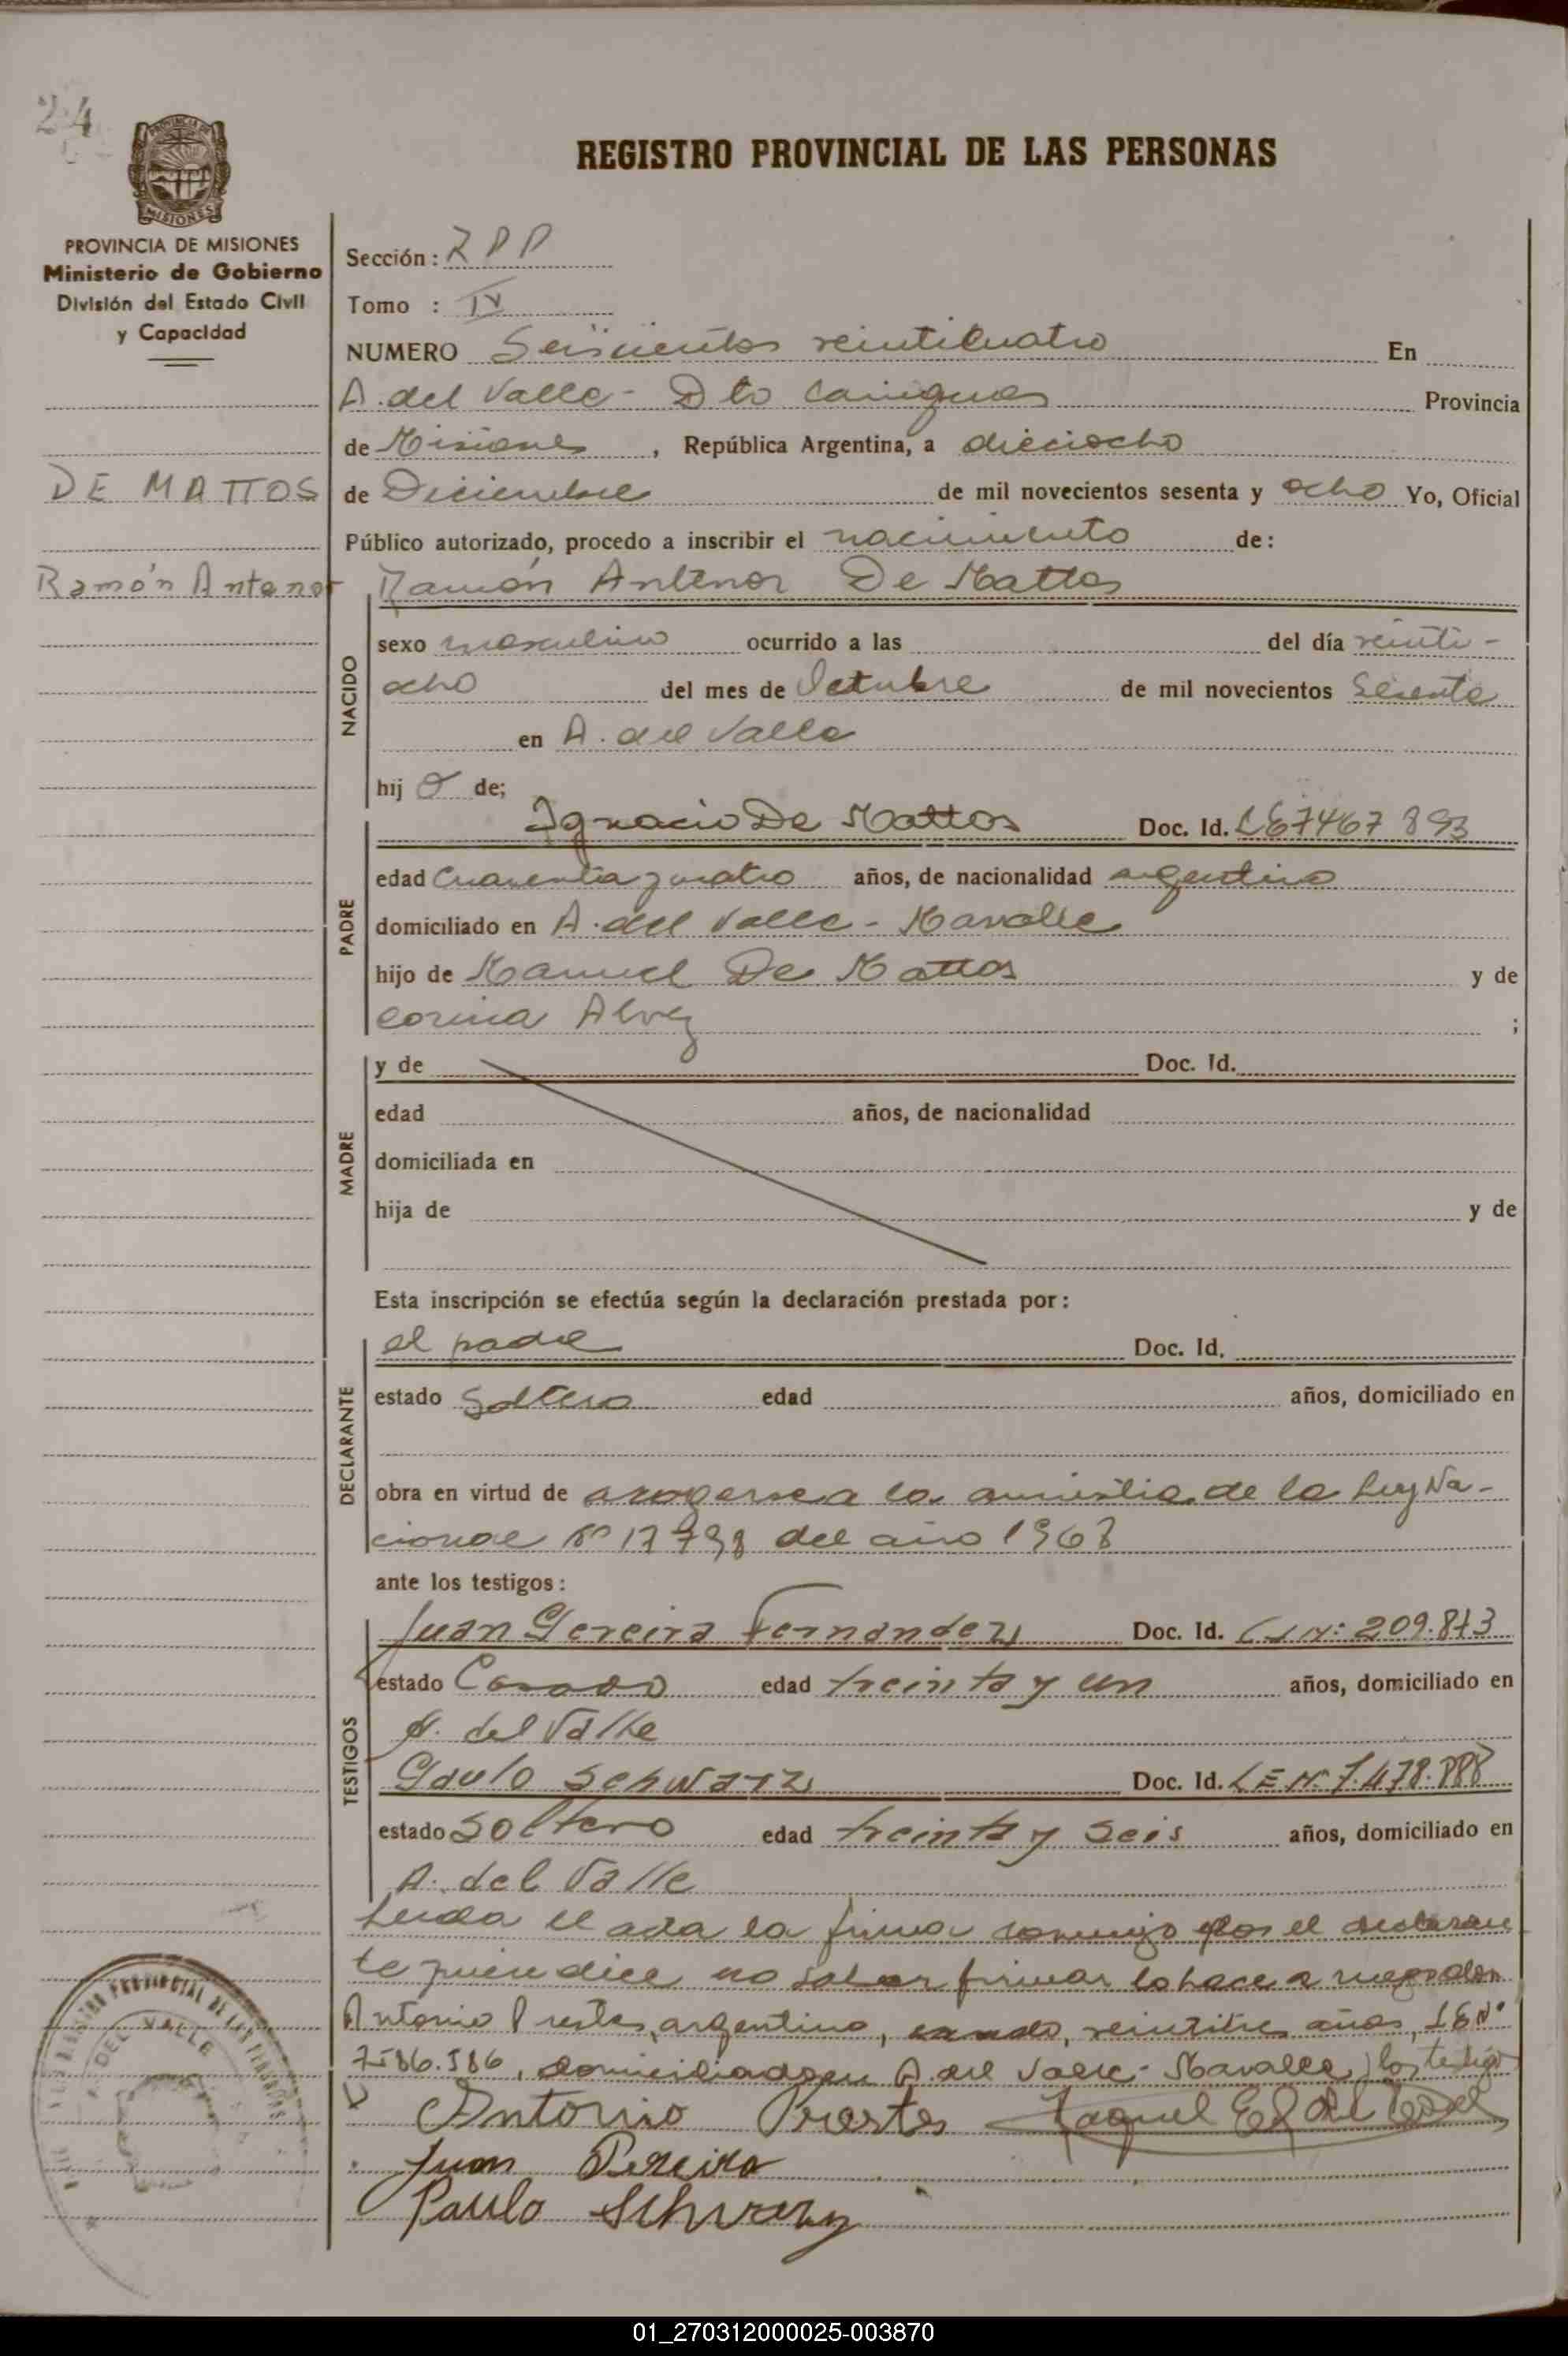 24
REGISTRO PROVINCIAL DE LAS PERSONAS
PROVINCIA DE MISIONES
Ministerio de Gobierno
División del Estado Civil
y Capacidad
DE MATTOS
Ramón Antenor
Sección :
Tomo : IV
NUMERO Seiscientos veinticuatro En
A. del Valle - Dto Cainguas Provincia
de Misiones , República Argentina, a dieciocho
de Diciembre de mil novecientos sesenta y ocho Yo, Oficial
Público autorizado, procedo a inscribir el nacimiento de:
Ramón Antenor De Mattos
NACIDO
sexo masculino ocurrido a las del día veinti-
ocho del mes de Octubre de mil novecientos sesenta
en A. del Valle
hij o de;
PADRE
Ignacio De Mattos Doc. Id. LE 7467 893
edad cuarenta y cuatro años, de nacionalidad argentino
domiciliado en A. del Valle - Mavalle
hijo de Manuel De Mattos y de
Corina Alvez ;
MADRE
y de Doc. Id.
edad años, de nacionalidad
domiciliada en
hija de y de
Esta inscripción se efectúa según la declaración prestada por :
DECLARANTE
el padre Doc. Id.
estado Soltero edad años, domiciliado en
obra en virtud de acogerse a la amnistia de la Ley Na-
cional Nº 17798 del año 1968
ante los testigos :
TESTIGOS
Juan Pereira Fernandez Doc. Id. 209.873
estado Casado edad treinta y un años, domiciliado en
A. del Valle
Paulo Schwarz Doc. Id. LE Nº 7.478.888
estado Soltero edad treinta y seis años, domiciliado en
A. del Valle
Leida el acta la firma conmigo por el declaran
te quien dice no saber firmar lo hace a ruego don
Antonio Prestes, argentino, casado, veintitres años, LE Nº
7586.586, domiciliado en A. del Valle - Mavalle, los testigos
Antonio Prestes Raquel
Juan Pereira
Paulo Schwarz
REGISTRO PROVINCIAL DE LAS PERSONAS
A. DEL VALLE
01_270312000025-003870